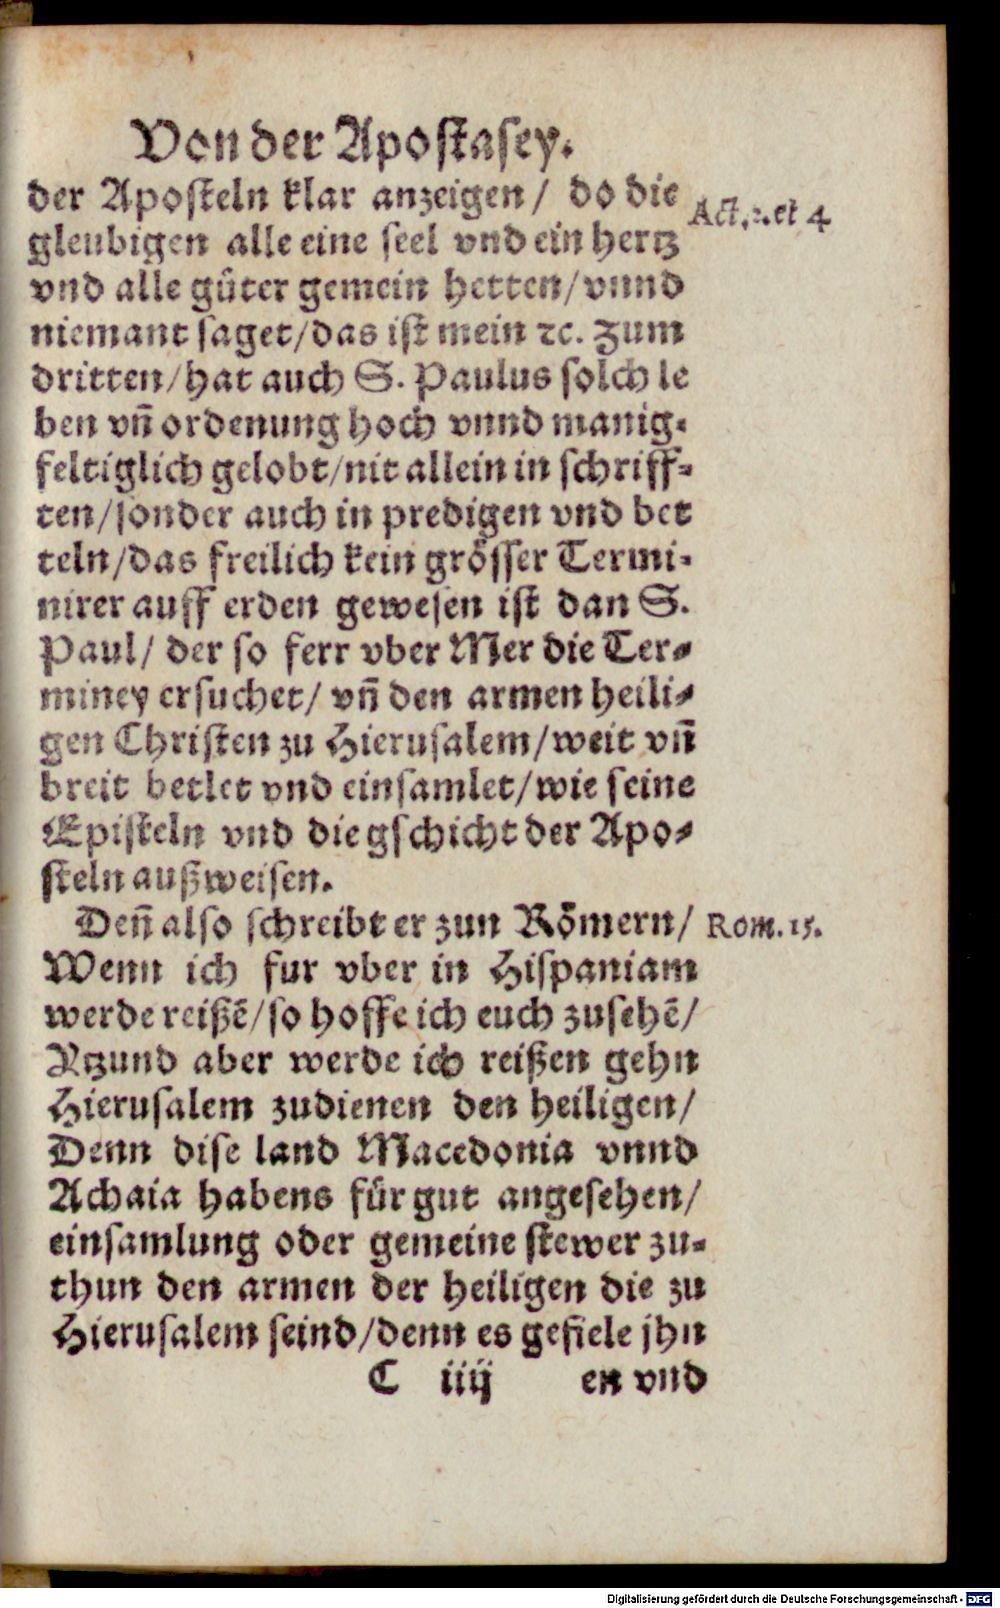 Von der Apostasey.
der Aposteln klar anzeigen/ do die
Act. 2. et 4
gleubigen alle eine seel vnd ein hertz
vnd alle güter gemein hetten/vnnd
niemant saget/das ist mein ꝛc. Zum
dritten/hat auch S. Paulus solch le
ben vn̄ ordenung hoch vnnd manig-
feltiglich gelobt/nit allein in schriff-
ten/sonder auch in predigen vnd bet
teln/das freilich kein grösser Termi-
nirer auff erden gewesen ist dan S.
Paul/ der so ferr vber Mer die Ter-
miney ersuchet/ vn̄ den armen heili-
gen Christen zu Hierusalem/weit vn̄
breit betlet vnd einsamlet/wie seine
Episteln vnd die gschicht der Apo-
steln außweisen.
Den̄ also schreibt er zun Römern/
Rom. 15.
Wenn ich fur vber in Hispaniam
werde reißē/so hoffe ich euch zusehē/
Ytzund aber werde ich reißen gehn
Hierusalem zudienen den heiligen/
Denn dise land Macedonia vnnd
Achaia habens für gut angesehen/
einsamlung oder gemeine stewer zu-
thun den armen der heiligen die zu
Hierusalem seind/denn es gefiele jhn
C iiij en vnd
Digitalisierung gefördert durch die Deutsche Forschungsgemeinschaft - DFG